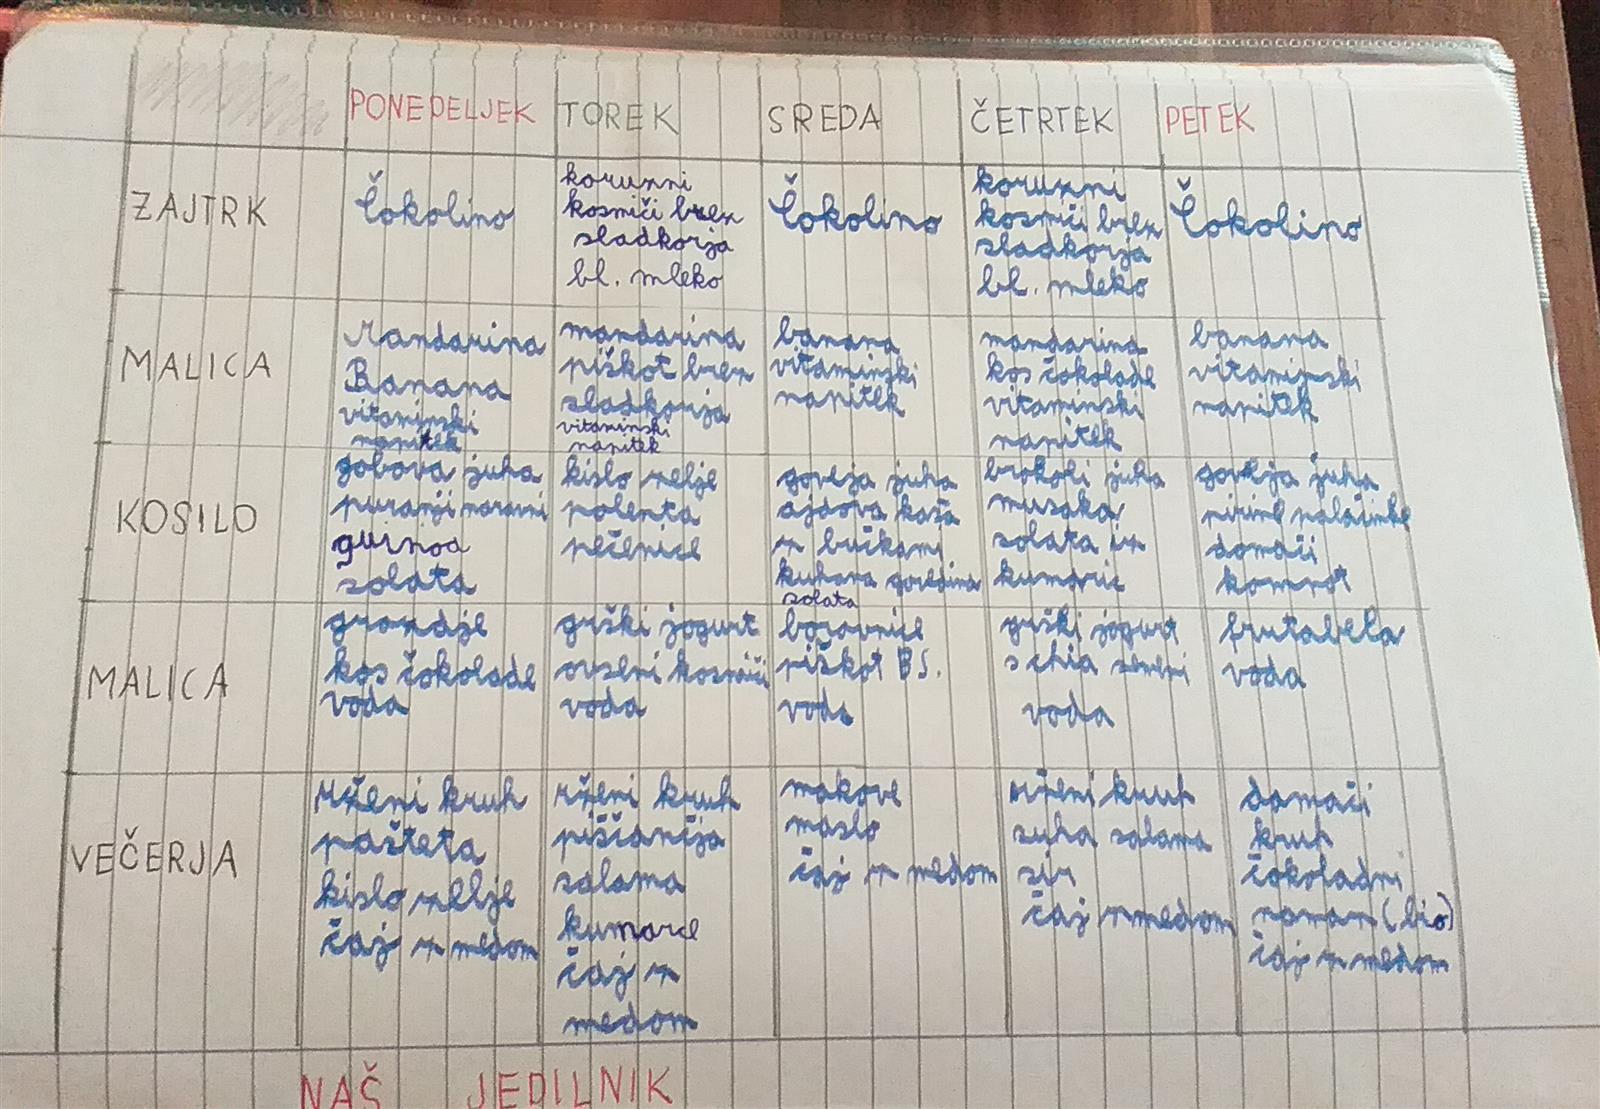 PONEDELJEK TOREK SREDA ČETRTEK PETEK
ZAJTRK
Čokolino
koruzni
kosmiči brez
sladkorja
bl. mleko
Čokolino
koruzni
kosmiči brez
sladkorja
bl. mleko
Čokolino
MALICA
Mandarina
Banana
vitaminski
napitek
mandarina
piškot brez
sladkorja
vitaminski
napitek
banana
vitaminski
napitek
mandarina
kos čokolade
vitaminski
napitek
banana
vitaminski
napitek
KOSILO
gobova juha
puranji naravni
quinoa
solata
kislo zelje
polenta
pečenice
goveja juha
ajdova kaša
z bučkami
kuhana govedina
solata
brokoli juha
musaka
solata iz
kumaric
goveja juha
pirine palačinke
domači
kompot
MALICA
grozdje
kos čokolade
voda
grški jogurt
ovseni kosmiči
voda
borovnice
piškot BS.
voda
grški jogurt
s chia semeni
voda
frutabela
voda
VEČERJA
rženi kruh
pašteta
kislo zelje
čaj z medom
rženi kruh
piščančja
salama
kumare
čaj z
medom
makove
maslo
čaj z medom
rženi kruh
suha salama
sir
čaj z medom
domači
kruh
čokoladni
namaz (bio)
čaj z medom
NAŠ JEDILNIK